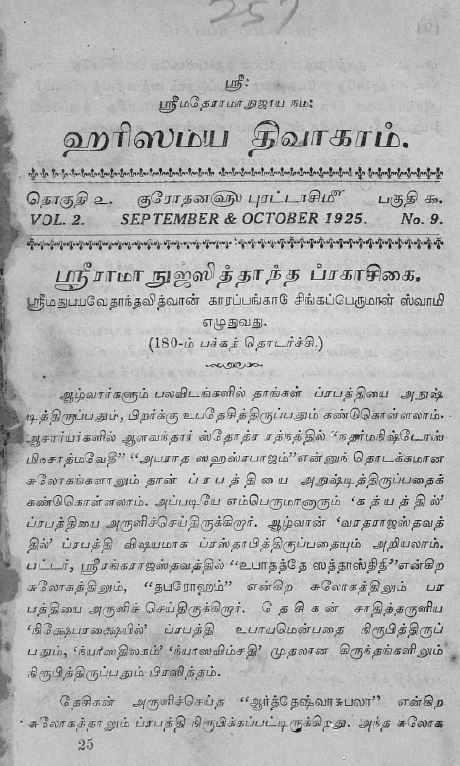 257
ஸ்ரீ:
ஸ்ரீமதேராமாநுஜாய நம:
ஹரிஸமய திவாகரம்.
தொகுதி உ. குரோதன௵ புரட்டாசி௴ பகுதி ௯.
VOL. 2. SEPTEMBER & OCTOBER 1925. No. 9.
ஸ்ரீராமாநுஜஸித்தாந்த ப்ரகாசிகை.
ஸ்ரீமதுபயவேதாந்தவித்வான் காரப்பங்காடு சிங்கப்பெருமாள் ஸ்வாமி
எழுதுவது.
(180-ம் பக்கத் தொடர்ச்சி.)
ஆழ்வார்களும் பலவிடங்களில் தாங்கள் ப்ரபத்தியை அநுஷ்
டித்திருப்பதும், பிறர்க்கு உபதேசித்திருப்பதும் கண்டுகொள்ளலாம்.
ஆசார்யர்களில் ஆளவந்தார் ஸ்தோத்ர ரத்நத்தில் “நதர்மநிஷ்டோஸ்
மிநசாத்மவேதீ” “அபராத ஸஹஸ்ரபாஜம்”என்னுந் தொடக்கமான
சுலோகங்களாலும் தான் ப்ரபத்தியை அநுஷ்டித்திருப்பதைக்
கண்டுகொள்ளலாம். அப்படியே எம்பெருமானாரும் ‘கத்யத்தில்’
ப்ரபத்தியை அருளிச்செய்திருக்கிறார். ஆழ்வான் ‘வரதராஜஸ்தவத்
தில்’ ப்ரபத்தி விஷயமாக ப்ரஸ்தாபித்திருப்பதையும் அறியலாம்.
பட்டர், ஸ்ரீரங்கராஜஸ்தவத்தில் “உபாதத்தே ஸத்தாஸ்திதி”என்கிற
சுலோகத்திலும், “தபரோஹம்” என்கிற சுலோகத்திலும் பர
பத்தியை அருளிச் செய்திருக்கிறார். தேசிகன் சாதித்தருளிய
‘நிக்ஷேபரக்ஷையில்’ ப்ரபத்தி உபாயமென்பதை நிரூபித்திருப்
பதும், ‘ந்யாஸதிலகம்’ ‘ந்யாஸவிம்சதி’ முதலான கிருந்தங்களிலும்
நிரூபித்திருப்பதும் பிரஸித்தம்.
தேசிகன் அருளிச்செய்த “ஆர்த்தேஷ்வாசுபலா” என்கிற
சுலோகத்தாலும் ப்ரபத்தி நிரூபிக்கப்பட்டிருக்கிறது. அந்த சுலோக
25